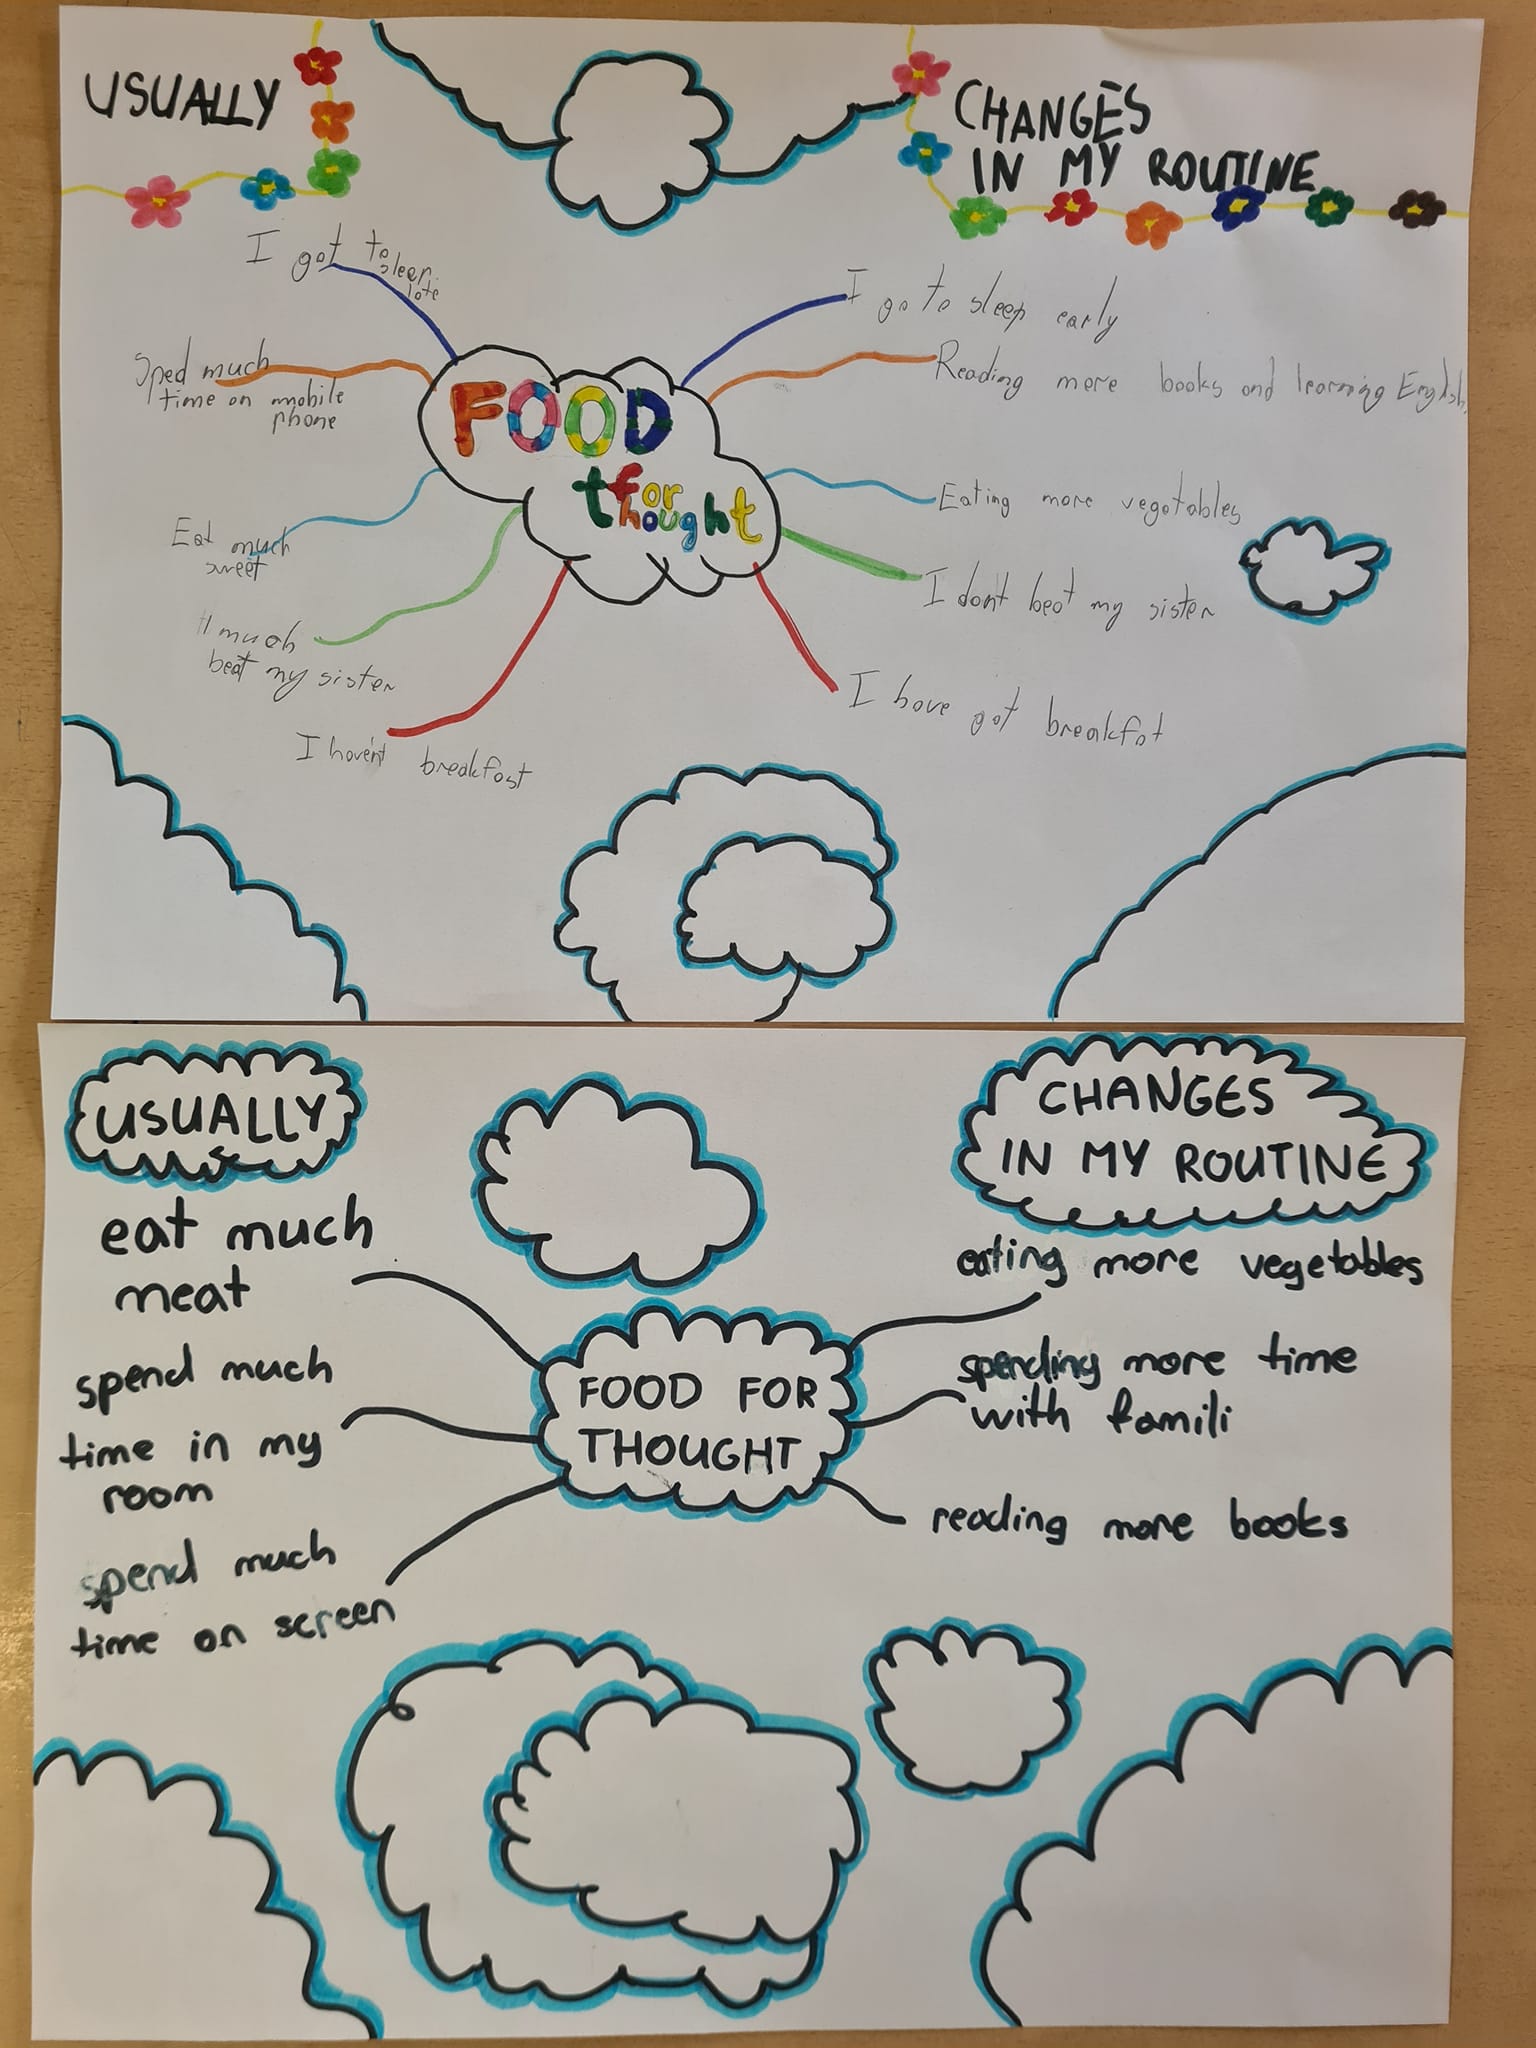 USUALLY
CHANGES
IN MY ROUTINE
I got to
sleep
late
Sped much
time on mobile
phone
Eat much
sweet
much
beat my sister
I haven't breakfast
FOOD
for
thought
I go to sleep early
Reading more books and learning English
Eating more vegetables
I dont beat my sister
I have got breakfat
USUALLY
eat much
meat
spend much
time in my
room
spend much
time on screen
FOOD FOR
THOUGHT
CHANGES
IN MY ROUTINE
eating more vegetables
spending more time
with famili
reading more books